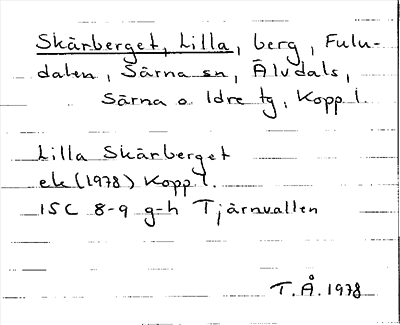 Skärberget, Lilla, berg, Fulu-
dalen, Särna sn, Älvdals,
Särna o Idre tg, Kopp l.
Lilla Skärberget
ek (1978) Kopp l.
15C 8-9 g-h Tjärnvallen
T.Å. 1978